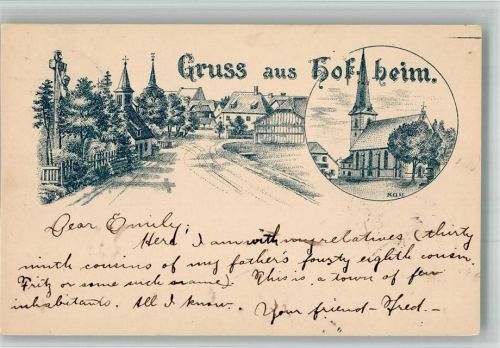 Gruss aus Hofheim.
Dear Emily;
Here I am with my relatives (thirty
ninth cousins of my father's fousty eighth cousin
Fritz or some such name). This is a town of few
inhabitants. All I know. Your friend - Fred. -